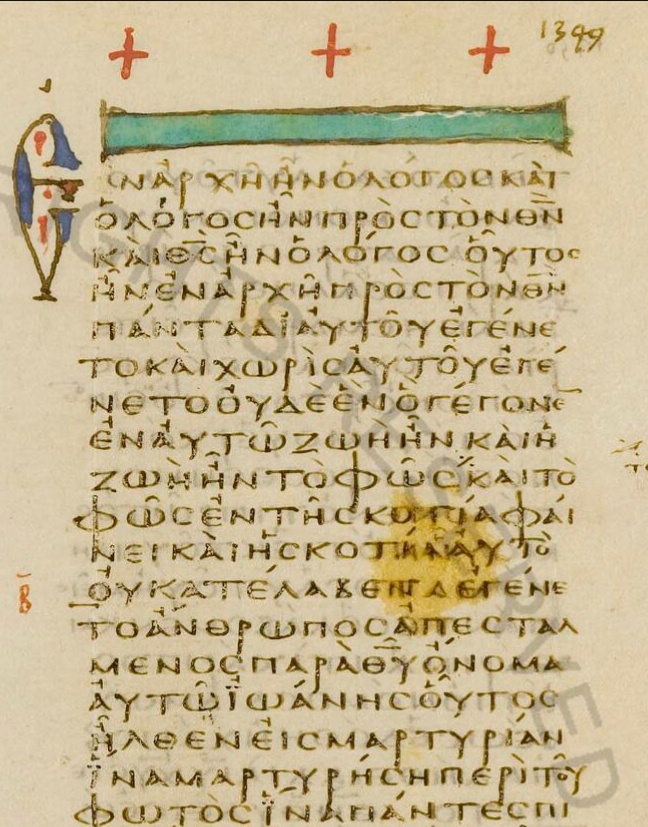 1349
ΕΝΑΡΧΗΗΝΟΛΟΓΟΣΚΑΙ
ΟΛΟΓΟΣΗΝΠΡΟΣΤΟΝΘΝ
ΚΑΙΘΣΗΝΟΛΟΓΟΣΟΥΤΟΣ
ΗΝΕΝΑΡΧΗΠΡΟΣΤΟΝΘΝ
ΠΑΝΤΑΔΙΑΥΤΟΥΕΓΕΝΕ
ΤΟΚΑΙΧΩΡΙΣΑΥΤΟΥΕΓΕ
ΝΕΤΟΟΥΔΕΕΝΟΓΕΓΟΝΕ
ΕΝΑΥΤΩΖΩΗΗΝΚΑΙΗ
ΖΩΗΗΝΤΟΦΩΣΚΑΙΤΟ
ΦΩΣΕΝΤΗΣΚΟΤΙΑΦΑΙ
ΝΕΙΚΑΙΗΣΚΟΤΙΑΑΥΤΟ
ΟΥΚΑΤΕΛΑΒΕΝΕΓΕΝΕ
ΤΟΑΝΘΡΩΠΟΣΑΠΕΣΤΑΛ
ΜΕΝΟΣΠΑΡΑΘΥΟΝΟΜΑ
ΑΥΤΩΪΩΑΝΗΣΟΥΤΟΣ
ΗΛΘΕΝΕΙΣΜΑΡΤΥΡΙΑΝ
ΪΝΑΜΑΡΤΥΡΗΣΗΠΕΡΙΤΟΥ
ΦΩΤΟΣΪΝΑΠΑΝΤΕΣΠΙ
Β